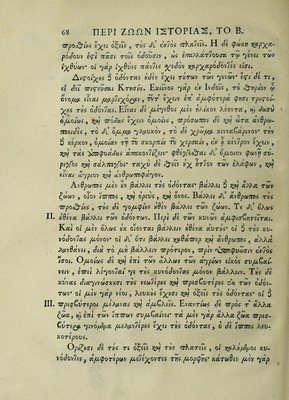 68 ΠΕΡΙ ΖΩΩΝ ΙΣΤΟΡΙΑΣ, ΤΟ Β.
προσθίους ἔχει ὀξεῖς, τοὺς δ' ἐντὸς πλατεῖς. Ἡ δὲ φώκη καρχα-
ρόδους ἐστὶ πᾶσι τοῖς ὀδοῦσιν, ὡς ἐπαλλάττουσα τῷ γένει τῶν
ἰχθύων· οἱ γὰρ ἰχθύες πάντες σχεδὸν καρχαρόδοντές εἰσι.
Διστοίχους δὲ ὀδόντας οὐδὲν ἔχει τούτων τῶν γενῶν· ἔστι δέ τι,
εἰ δεῖ πιστεῦσαι Κτησίᾳ. Ἐκεῖνος γὰρ ἐν Ἰνδοῖς, τὸ θηρίον ᾧ
ὄνομα εἶναι μαρτιχόραν, τοῦτ' ἔχειν ἐπ' ἀμφότερά φησι τριστοί-
χους τοὺς ὀδόντας. Εἶναι δὲ μέγεθος μὲν ἡλίκον λέοντα, καὶ δασὺ
ὁμοίως, καὶ πόδας ἔχειν ὁμοίως, πρόσωπον δὲ καὶ ὦτα ἀνθρω-
ποειδές, τὸ δ' ὄμμα γλαυκόν, τὸ δὲ χρῶμα κινναβάρινον· τὴν
δὲ κέρκον, ὁμοίαν τῇ τοῦ σκορπίου τοῦ χερσαίου, ἐν ᾗ κέντρον ἔχειν,
καὶ τὰς ἀποφυάδας ἀπακοντίζειν· φθέγγεσθαι δ' ὅμοιον φωνῇ σύ-
ριγγος καὶ σάλπιγγος· ταχὺ δὲ θεῖν οὐχ ἧττον τῶν ἐλάφων, καὶ
εἶναι ἄγριον καὶ ἀνθρωποφάγον.
Ἄνθρωπος μὲν οὖν βάλλει τοὺς ὀδόντας· βάλλει δὲ καὶ ἄλλα τῶν
ζώων, οἷον ἵππος, καὶ ὀρεύς, καὶ ὄνος. Βάλλει δ' ἄνθρωπος τοὺς
προσθίους, τοὺς δὲ γομφίους οὐθὲν βάλλει τῶν ζώων. Ὗς δ' ὅλως
II. οὐθένα βάλλει τῶν ὀδόντων. Περὶ δὲ τῶν κυνῶν ἀμφισβητεῖται.
Καὶ οἱ μὲν ὅλως οὐκ οἴονται βάλλειν οὐθένα αὐτούς· οἱ δὲ τοὺς
κυνόδοντας μόνον· οἱ δ' ὅτι βάλλει καθάπερ καὶ ἄνθρωπος, ἀλλὰ
λανθάνει, διὰ τὸ μὴ βάλλειν πρότερον, πρὶν ὑποφύωσιν ἐντὸς
ἴσοι. Ὁμοίως δὲ καὶ ἐπὶ τῶν ἄλλων τῶν ἀγρίων εἰκὸς συμβαί-
νειν, ἐπεὶ λέγονταί γε τοὺς κυνόδοντας μόνον βάλλειν. Τὰς δὲ
κύνας διαγινώσκουσι τὰς νεωτέρας καὶ πρεσβυτέρας ἐκ τῶν ὀδόν-
των· οἱ μὲν γὰρ νέοι, λευκοὺς ἔχουσι καὶ ὀξεῖς τοὺς ὀδόντας· οἱ δὲ
III. πρεσβύτεροι μέλανας καὶ ἀμβλεῖς. Ἐναντίως δὲ πρὸς τἆλλα
ζῶα, καὶ ἐπὶ τῶν ἵππων συμβαίνει· τὰ μὲν γὰρ ἄλλα ζῶα πρεσ-
βύτερα γινόμενα μελαντέρους ἔχει τοὺς ὀδόντας, ὁ δὲ ἵππος λευ-
κοτέρους.
Ὁρίζουσι δὲ τούς τε ὀξεῖς καὶ τοὺς πλατεῖς, οἱ καλούμενοι κυ-
νόδοντες, ἀμφοτέρων μετέχοντες τῆς μορφῆς· κάτωθεν μὲν γὰρ